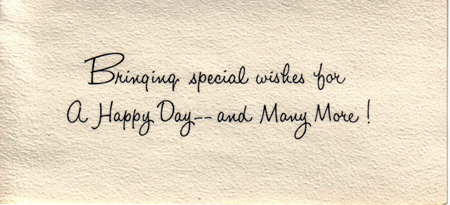 Bringing special wishes for
A Happy Day--and Many More!